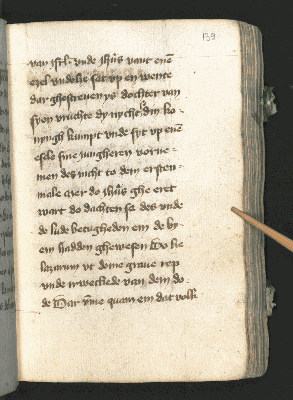 139
van isrl. vnde jhūs vant enē
ezel vnde he sat vp en wente
dar ghescreuen ys dochter van
syon vruchte dy nycht dyn ko-
nyngh kumpt vnde syt vp enē
esele sine jungheren vorne-
men des nicht to dem ersten-
male mer do jhūs ghe eret
wart do dachten se des vnde
de lude betugheden em de by
em hadden ghewesen Do he
lazarum vt dome graue rep
vnde irweckede van dem do
de Dar v̄me quam em dat volk